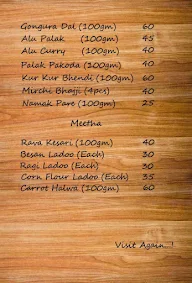 Gongura Dal (100gm) 60
Alu Palak (100gm) 45
Alu Curry (100gm) 40
Palak Pakoda (100gm) 40
Kur Kur Bhendi (100gm) 60
Mirchi Bhajji (4pcs) 40
Namak Pare (100gm) 25
Meetha
Rava Kesari (100gm) 40
Besan Ladoo (Each) 30
Ragi Ladoo (Each) 30
Corn Flour Ladoo (Each) 35
Carrot Halwa (100gm) 60
Visit Again...!